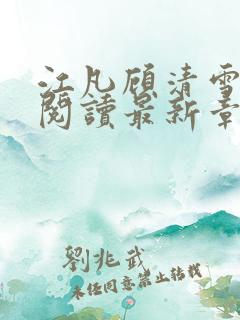 江凡顾清雪
閱讀最新章
劉兆武
未经同意禁止转载